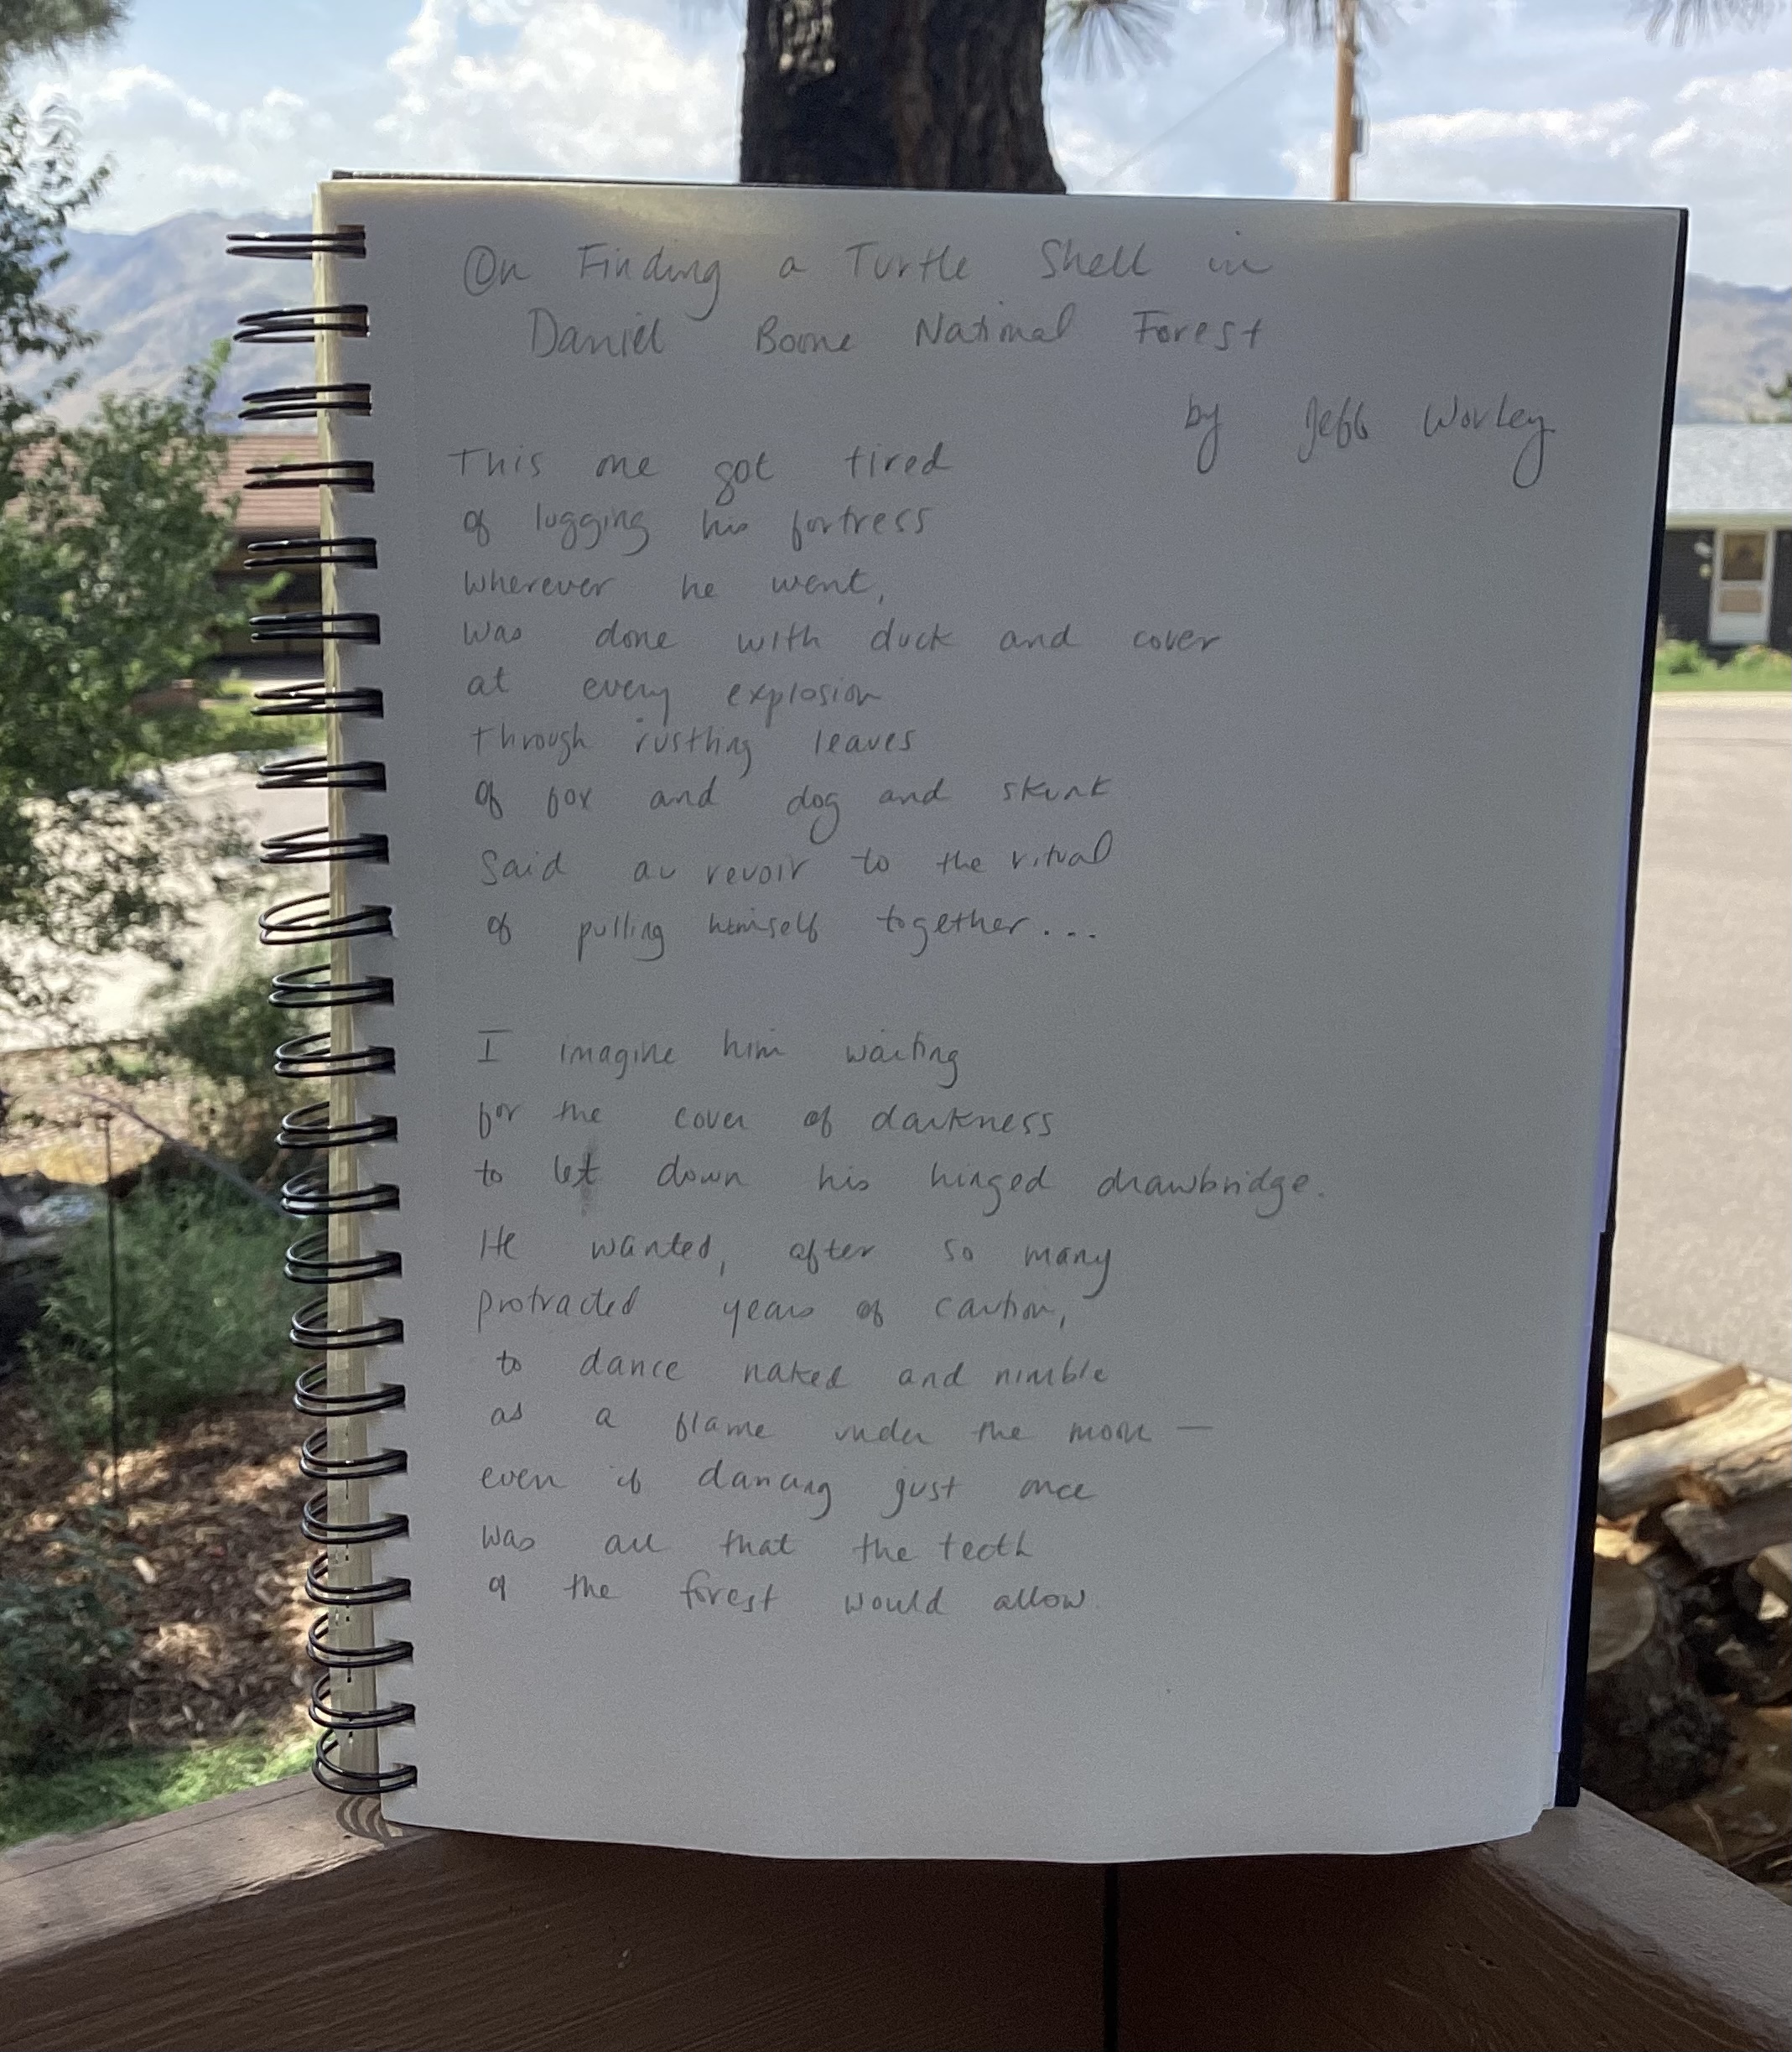 On Finding a Turtle Shell in
Daniel Boone National Forest
by Jeff Worley
This one got tired
of lugging his fortress
wherever he went,
was done with duck and cover
at every explosion
through rustling leaves
of fox and dog and skunk
Said au revoir to the ritual
of pulling himself together...
I imagine him waiting
for the cover of darkness
to let down his hinged drawbridge.
He wanted, after so many
protracted years of caution,
to dance naked and nimble
as a flame under the moon —
even if dancing just once
was all that the teeth
of the forest would allow.